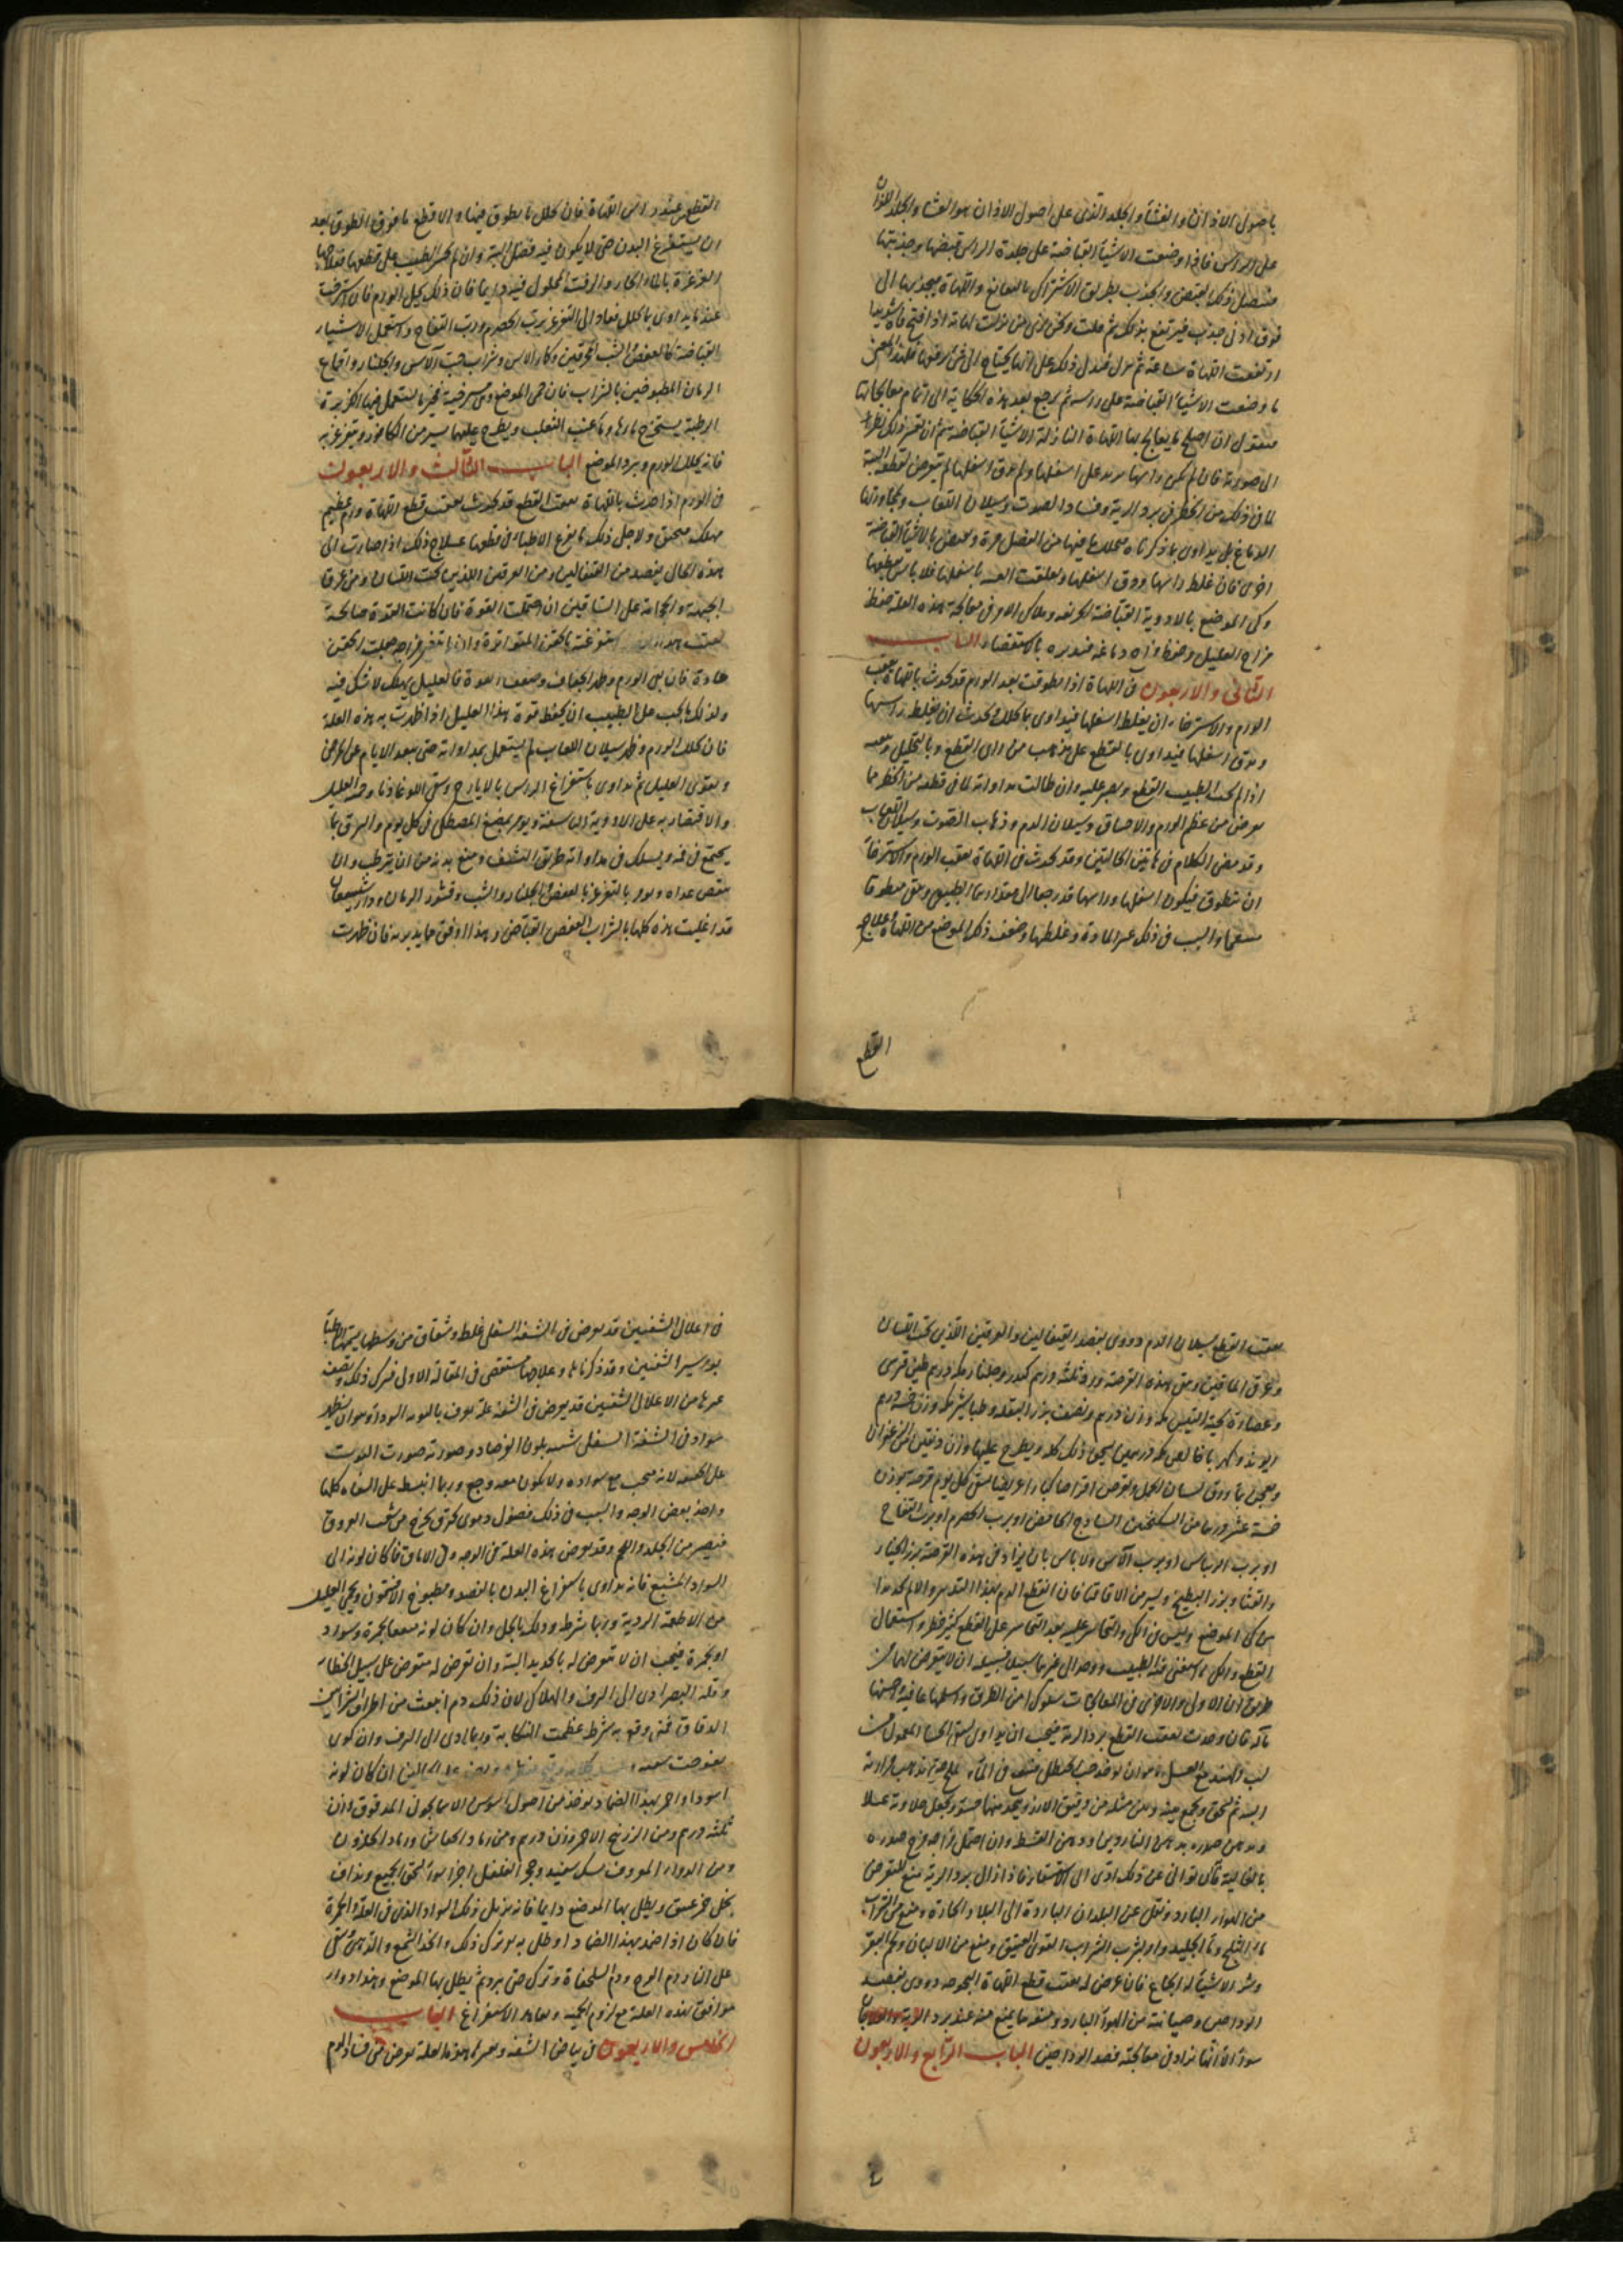 باصول الاذان والغشاء والجلد الذى على اصول الاذان هو الغشا والجلد اللذان
على الراس فاذا وضعت الاشياء القباضة على جلدة الراس قبضتها وجذبتها
فيتصل ذلك القبض والجذب بطريق الاشتراك بالنغانغ واللهاة فيجذبها الى
فوق ادنى جذب فيرتفع بذلك ثم قلت وكنى ارى من نزلت لهاته اذا فتح فاه شديدا
ارتفعت اللهاة ساعة ثم نزل فدل ذلك على انها يحتاج الى شئ يرفعها فلهذا المعنى
ما وضعت الاشياء القباضة على راسه ثم نرجع بعد هذه الحكاية الى اتمام معالجاتها
فنقول ان اصلح ما يعالج بها اللهاة النازلة الاشياء القباضة ثم ان نظر
الى صورته فان لم يكن راسها يزيد على اسفلها ولم يدق اسفلها لم يتعرض لقطعه البتة
لان ذلك من الخطر فى برد الرية وفساد الصوت وسيلان اللعاب ومجاورتها
الدماغ بل يداوى بما ذكرناه بتحلل ما فيها من الفضل مرة ويقبض بالاشياء القباضة
اخرى فان غلظ راسها ودق اسفلها وتعلقت باسفلها فلا باس بقطعها
وكى الموضع بالادوية القباضة وملاك الامر فى معالجة هذه العلة حفظ
مزاج العليل وحفظ مزاج دماغه فتدبره بالاستقصاء الباب
الثانى والاربعون فى اللهاة اذا تطوقت بعد الورم قد يحدث باللهاة عقب
الورم والاسترخاء ان يغلظ اسفلها فيداوى بما يحلل ويحدث ان يغلظ راسها
ويدق اسفلها فيداوى بالقطع على مذهب من راى القطع وبالتحليل
اذا لم يحب الطبيب القطع ويصبر عليه وان طالت مداواته لان فى قطعه من الخطر ما
يعرض من عظم الورم والاختناق وسيلان الدم وذهاب الصوت وسيلان اللعاب
وقد مضى الكلام فى هاتين الحالتين وقد يحدث فى اللهاة بعقب الورم والاسترخاء
ان يتطوق فيكون اسفلها وراسها قد رجعا الى مقدارهما الطبيعى وبقى متطوقا
والسبب فى ذلك عسر المادة وغلظها وضعف ذلك الموضع من اللهاة علاج
القطع
القطع عند راس اللهاة فان تحلل ما يطوق فيها والا قطع ما فوق الطوق بعد
ان يستفرغ البدن حتى لا يكون فيه فضل البتة وان لم يجسر الطبيب على قطعها فعلاجها
الغرغرة بالماء الحار والزفت المحلول فيه دايما فان ذلك يحيل الورم فان استرخت
عند ما يداوى بما يحلل فعاد الى التغرغر برب الحصرم ورب التفاح واستعمل الاشياء
القباضة كالعفص والشب المحرقين وكماء الاس وشراب حب الآس والجلنار واقماع
الرمان المطبوخين بالشراب فان حمى الموضع فيجب ما يستعمل فيها الكزبرة
الرطبة يستخرج ماؤها وماء عنب الثعلب ويطرح عليهما يسير من الكافور ويتغرغر به
فانه يحلل الورم ويبرد الموضع الباب الثالث والاربعون
فى الورم اذا حدث باللهاة بعقب القطع قد يحدث بعقب قطع اللهاة ورم عظيم
مهلك مخنق ولاجل ذلك ما يفزع الاطباء فى قطعها علاج ذلك اذا صارت الى
هذه الحال يفصد من القيفالين ومن العرقين اللذين تحت اللسان ومن عرق
الجبهة والحجامة على الساقين ان احتملت القوة فان كانت القوة صالحة
استفرغته بالحقن المتواترة وان لم يتغير مزاجه جعلت الحقن
حادة فان بقى الورم وظهر الجفاف وضعف القوة فالعليل يهلك لا شك فيه
ولذلك ما يجب على الطبيب ان يحفظ قوة هذا العليل اذا ظهرت به هذه العلة
فان تحلل الورم وظهر سيلان اللعاب لم يستعمل بمداواته حتى تبعد الايام عن المرض
ويقوى العليل ثم يداوى باستفراغ الراس بالايارج وسقى اللوغاذيا وحمية العليل
والاقتصار به على الادوية اليابسة ويومر بمضغ المصطكى فى كل يوم والبزق بما
يجتمع فى فمه ويسلك فى مداواته طريق التنشف ومنع بدنه من ان يترطب وان
ينقص غذاه ويومر بالتغرغر بالعفص والجلنار والشب وقشور الرمان ودارشيشعان
قد اغليت هذه كلها بالشراب العفص القباض وهذا اوفق ما يدبر به فان ظهرت
بعقب القطع سيلان الدم دووى بفصد القيفالين والعرقين اللذين تحت اللسان
وعرق الماقين وسقى بهذه القرصة ورد ثلثة دراهم كهربا وجلنار مكد درهم طين قبرسى
وعصارة لحية التيس مكد وزن درهم ونصف بزر البقلة وطباشير مكد وزن خمسة دراهم
ريوند وكهربا مكد درهمين يسحق ذلك كله ويطرح عليها وزن دانقين من الزعفران
ويعجن بماء ورق لسان الحمل ويقرص اقراصا كبارا عريضا يسقى كل يوم قرصة بوزن
خمسة عشر درهما من السكنجبين الساذج الحامض او برب الحصرم او برب التفاح
او برب الريباس او برب الآس ولا باس بان يزاد فى هذه القرصة بزر الخيار
والقثاء وبزر البطيخ ويسير من الاقاقيا فان انقطع الدم بهذا التدبير والا لم نجد بدا
من كى الموضع وليس فى الكى والتجاسر عليه بعد التجاسر على القطع كثير خطر واستعمال
القطع والكى ما استغنى عنه الطبيب ووجد الى غيرها سبيلا فسبيله ان لا يتعرض لهما
طريق ان الاولى والاحرى فى المعالجات سلوك امن الطرق واسلمها عاقبة واحسنها
مآلا فان حدث بعقب القطع برد الرية فيجب ان يداوى بسقى الحسا المعمول من
لب مع العسل وهو ان يوخذ حب الحنظل فينقع فى الماء والملح حتى تذهب مرارته
البتة ثم يسحق ويجمع بينه وبين مثله من دقيق الارز ويتخذ منها حسو ويجعل حلاوته عسلا
ويدهن صدره بدهن الناردين او دهن القسط وان احتمل مزاجه مرخ صدره
بالغالية فان توانى عن ذلك ادى الى الاستسقاء فاذا زال برد الرية منع للتعرض
من الهواء البارد ونقل عن البلدان الباردة الى البلاد الحارة ومنع من شراب
ماء الثلج وماء الجليد وامر بشرب الشراب القوى العتيق ومنع من الالبان ولحم البقر
وشر الاشياء له الجماع فان عرض له بعقب قطع اللهاة البحوحة دووى بفصد
الوداجين وصيانته من الهواء البارد ومنعه ما يمنع منه عند برد الرية والعلاج
سواء الا انها يزاد فى معالجته فصد الوداجين الباب الرابع والاربعون
فى اعلال الشفتين قد يعرض فى الشفة السفلى غلظ وشقاق من وسطها يسميها الاطباء
بواسير الشفتين وقد ذكرناها وعلاجها مستقصى فى المقالة الاولى فنترك ذلك ونصف
غيرها من الاعلال الشفتين قد يعرض فى الشفة علة تعرف بالتوتة السوداء وهو ان يظهر
سواد فى الشفة السفلى شبيه بلون الفرصاد وصورته صورت التوت
على الحقيقة لانه متحبب مع سواده ولا يكون معه وجع وربما انبسط على الشفاه كلها
واخذ بعض الوجه والسبب فى ذلك فضول دموى يحترق يخرج من شعب العروق
فيصير بين الجلد واللحم وقد يعرض هذه العلة فى الوجه وفى الاماق فما كان لونه الى
السواد المشبع فانه يداوى باستفراغ البدن بالفصد ومطبوخ الافتيمون ويحمى العليل
من الاطعمة الردية وربما شرط ودلك بالخل وان كان لونه مع حمرة وسواد
او حمرة فيجب ان لا يتعرض له بالحديد البتة وان تعرض له متعرض على سبيل الخطاء
وقلة البصر ادى الى النزف والهلاك لان ذلك دم انبعث من اطراف الشرايين
الدقاق فمتى وقع به شرط عظمت النكاية وربما ادى الى النزف وان كوى
ان كان لونه
اسودا واحمر بهذا الضماد يوخذ من اصول السوسن الاسمانجونى المدقوق وزن
ثلثة دراهم ومن الزرنيخ الاحمر وزن درهم ومن رماد الخفاش ورماد الحلزون
ومن الدواء المعروف بسك سفيد وحجر الفلفل اجزاء سواء يسحق الجميع ويداف
بخل خمر عتيق ويطلى بها الموضع دايما فانه يزيل ذلك السواد الذى فى العلة والحمرة
فان كان اذا ضمد بهذا الضماد او طلى به لم يترك ذلك واتخذ الشمع والدهن سقى
على النار دم ودم السلحفاة وترك حتى يبرد ثم يطلى بها الموضع وهذا دواء
موافق لهذه العلة مع لزوم الحمية ومعاودة الاستفراغ الباب
الخامس والاربعون فى بياض الشفة وتغيرها هذه العلة تعرض متى فسد الدم